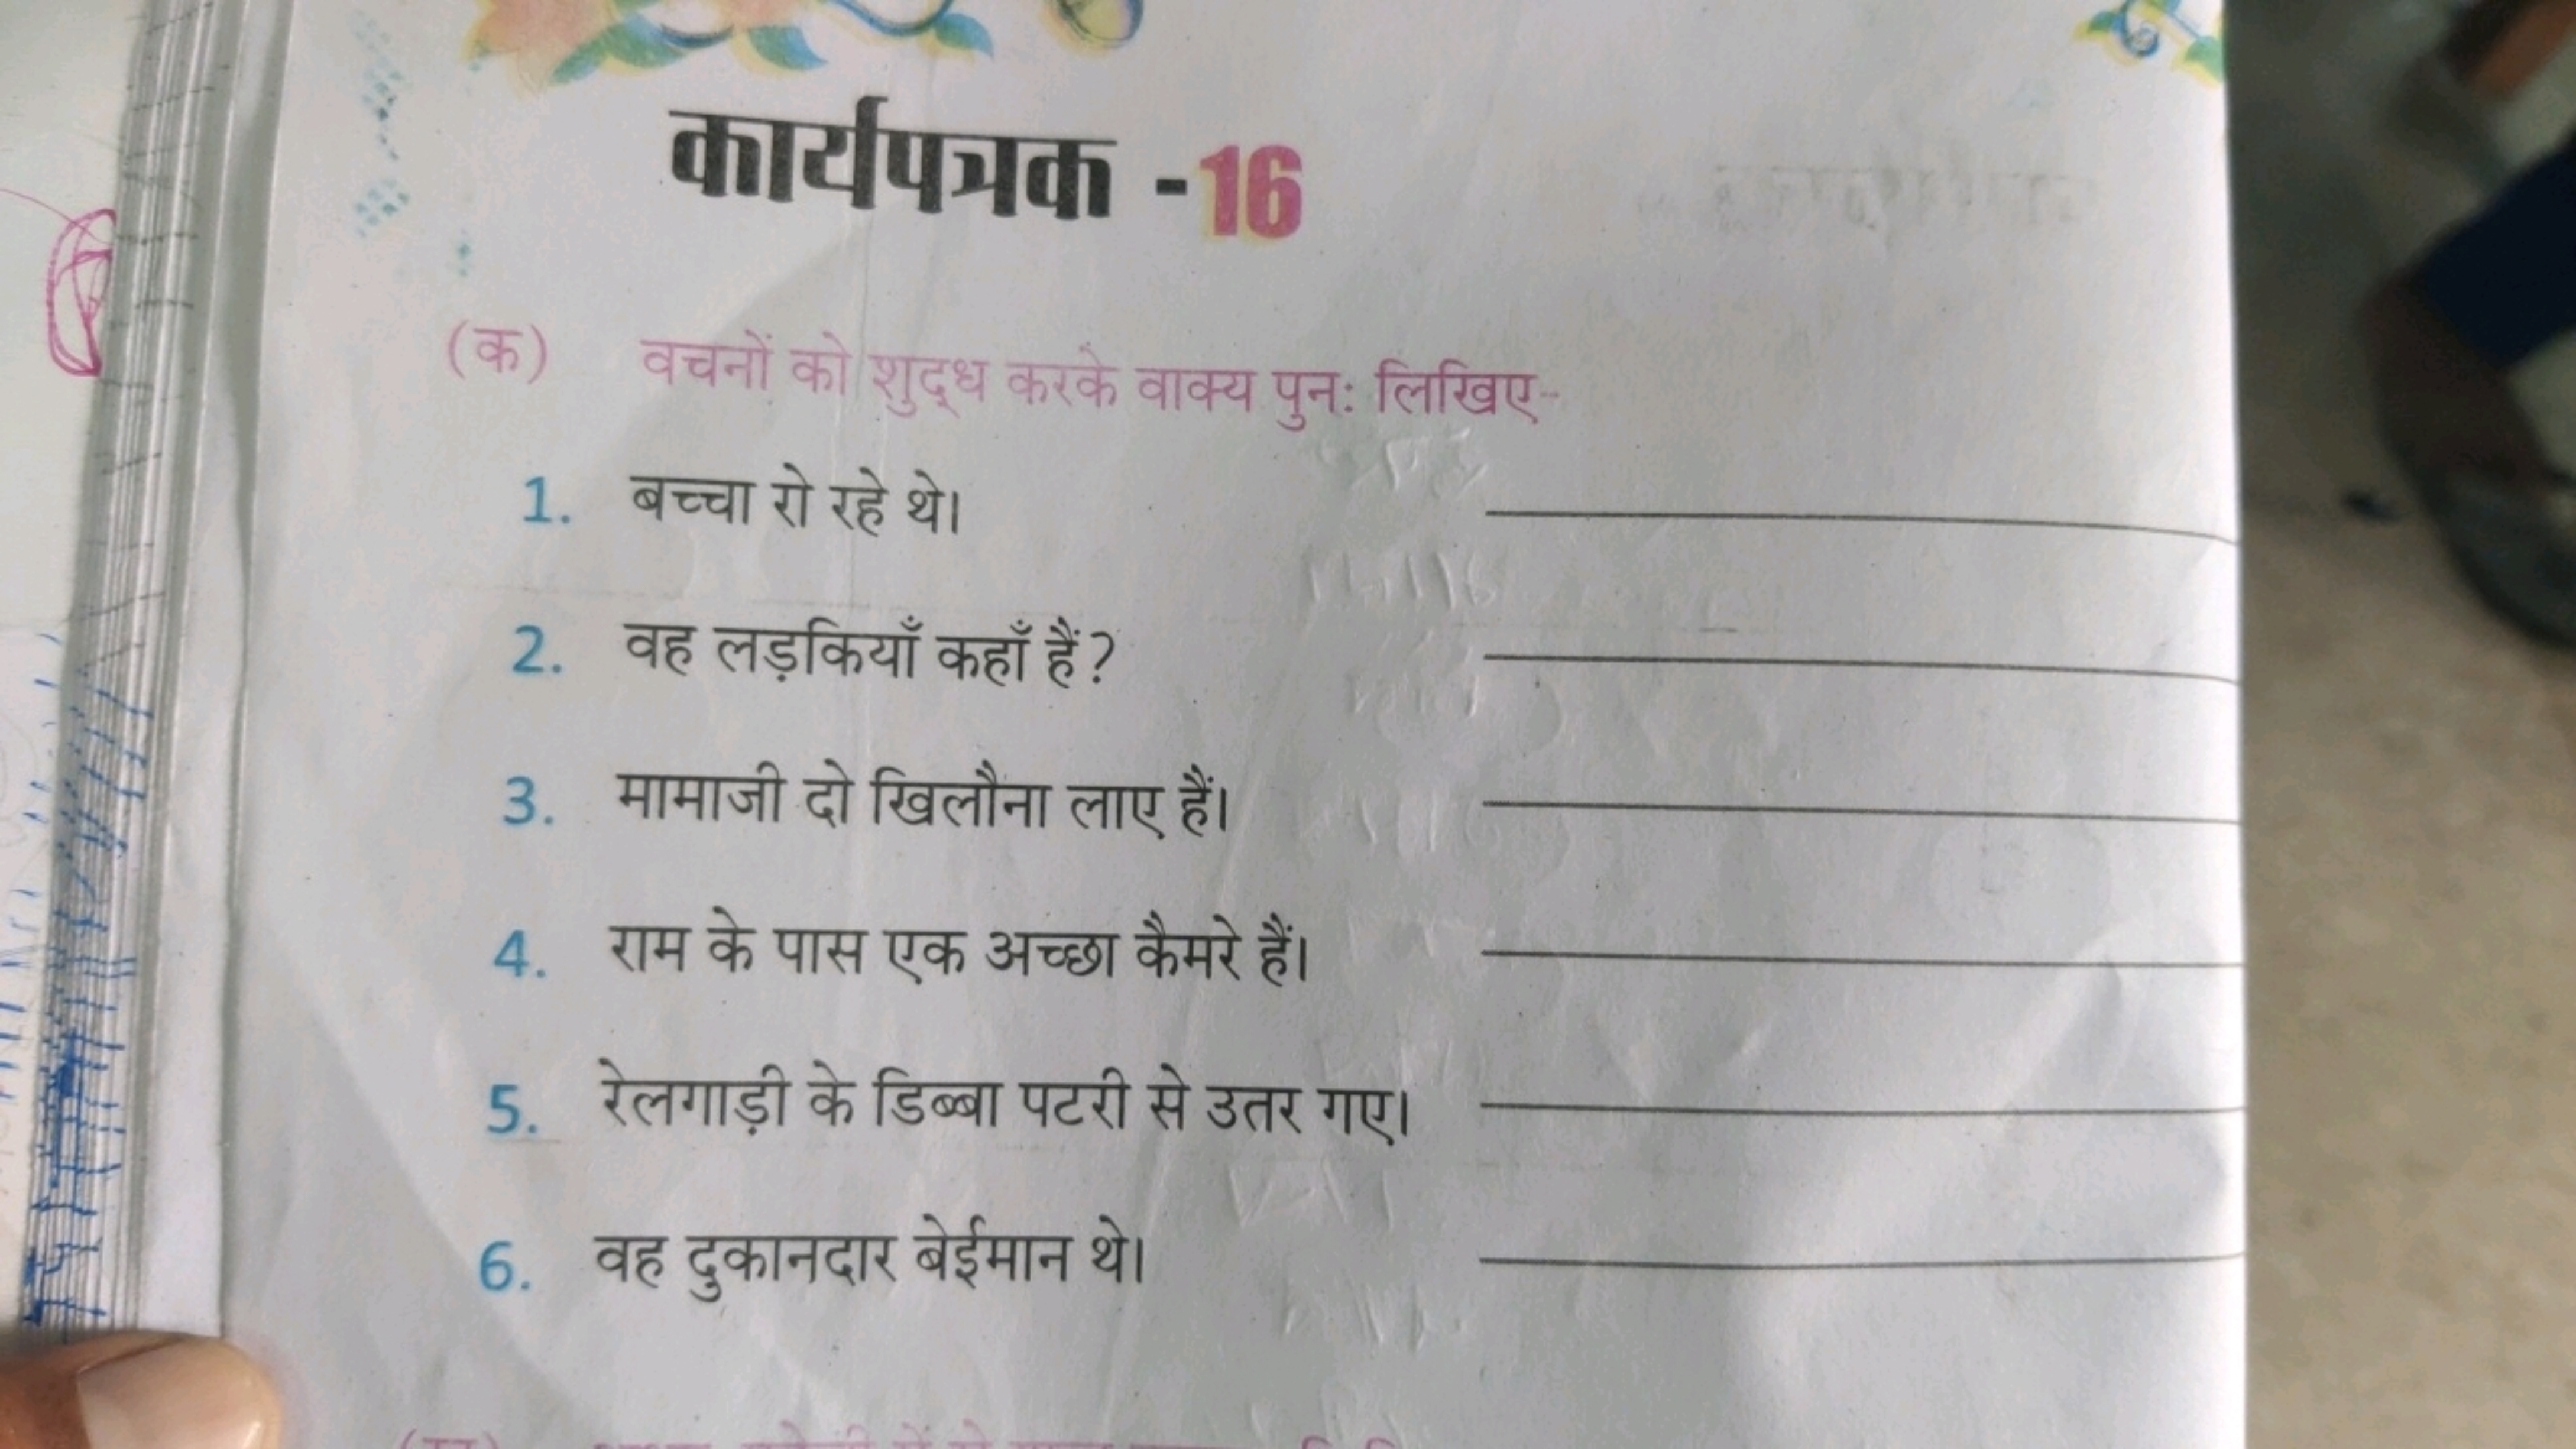 कार्यपत्रक -16
(क) वचनों को शुद्ध करके वाक्य पुनः लिखिए-
1. बच्चा रो रहे थे।
2. वह लड़कियाँ कहाँ हैं?
3. मामाजी दो खिलौना लाए हैं।
4. राम के पास एक अच्छा कैमरे हैं।
5. रेलगाड़ी के डिब्बा पटरी से उतर गए।
6. वह दुकानदार बेईमान थे।